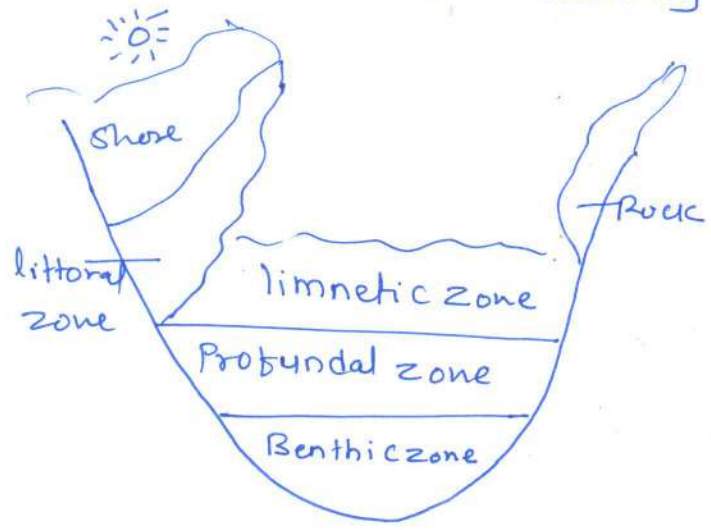 Shore
Rock
littoral
zone
limnetic zone
Profundal zone
Benthic zone